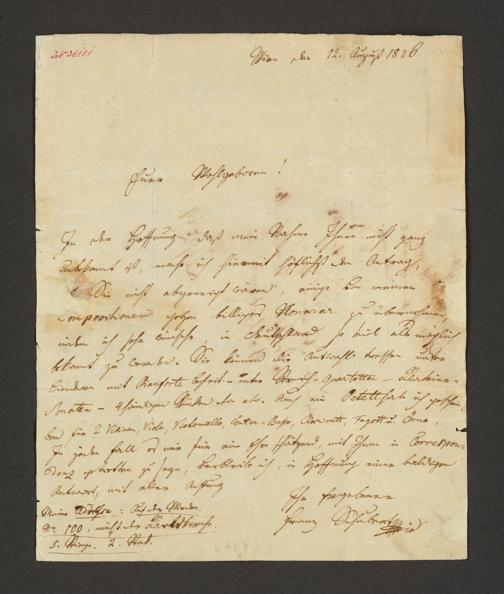 JN 36181
Wien den 12. August 1826
Euer Wohlgeboren!
In der Hoffnung, daß mein Nahme Ihnen nicht ganz
unbekannt ist, mache ich hiermit höflichst den Antrag,
ob Sie nicht abgeneigt wären, einige von meinen
Compositionen gegen billiges Honorar zu übernehmen,
indem ich sehr wünsche, in Deutschland so viel als möglich
bekannt zu werden. Sie können die Auswahl treffen unter
Liedern mit Pianoforte Begleit- unter Streich-Quartetten - Klavier-
Sonaten - 4händigen Stücken etc. etc. Auch ein Octett hab ich geschrie-
ben für 2 Violinen, Viola, Violoncello, Contre-Basso, Clarinett, Fagott u. Corno.
In jedem Fall es mir für eine Ehre schätzend, mit Ihnen in Correspon-
denz getretten zu seyn, verbleibe ich, in Hoffnung einer baldigen
Antwort, mit aller Achtung
Ihr Ergebener
Franz Schubert
Meine Addresse: Auf der Wieden
Nr. 100, nächst der Carlskirche,
5. Stiege, 2. Stock.